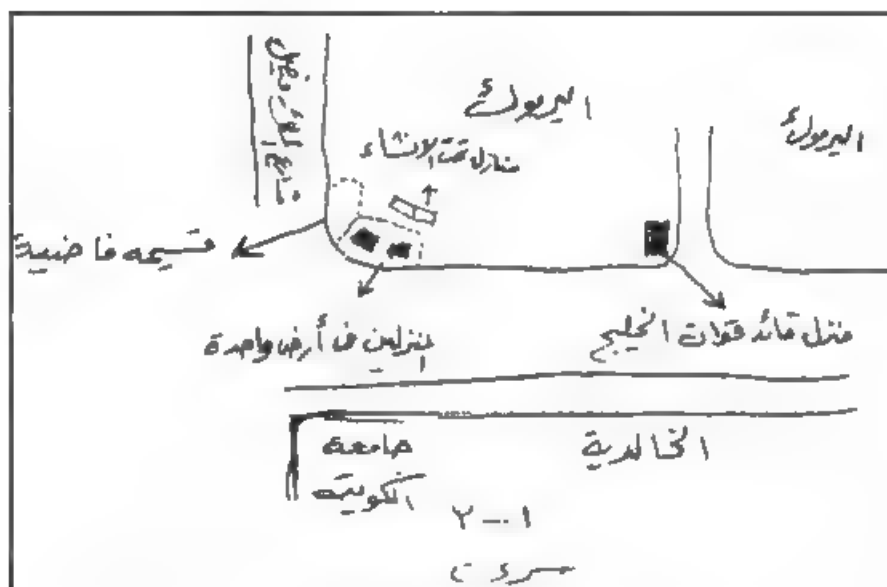 اليرموك
اليرموك
منازل تحت الانشاء
قسيمه فاضية
منزلين في أرض واحدة
منزل قائد قوات الخليج
الخالدية
جامعة
الكويت
١ - ٢